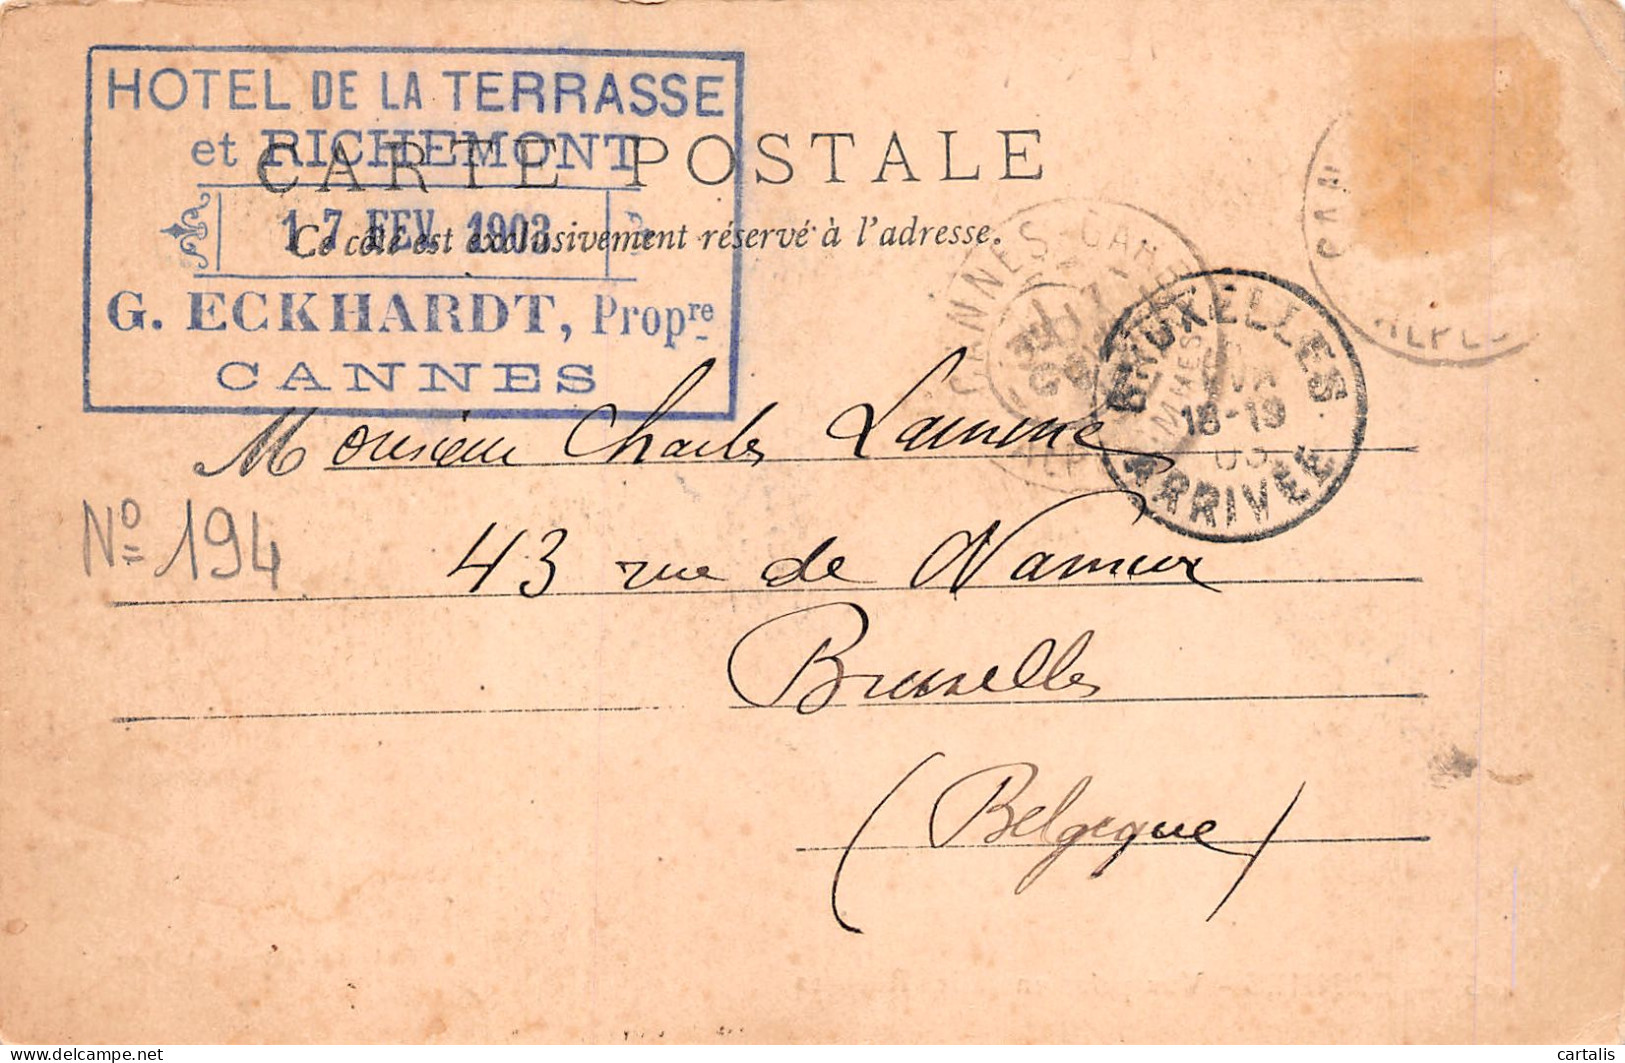 HOTEL DE LA TERRASSE
et RICHEMONT
17 FEV. 1903
G. ECKHARDT, Propre
CANNES
CARTE POSTALE
Ce côté est exclusivement réservé à l'adresse.
CANNES
BRUXELLES
18-19
03
ARRIVÉE
CAN
ALPES
Monsieur Charles
Nº 194
43 rue de Namur
Bruxelles
(Belgique)
delcampe.net
cartalis